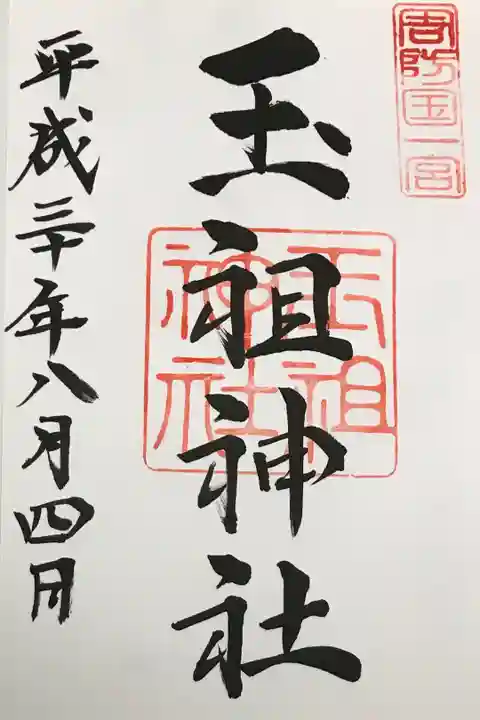 周防国一宮
玉祖神社
玉祖神社
平成三十年八月四日